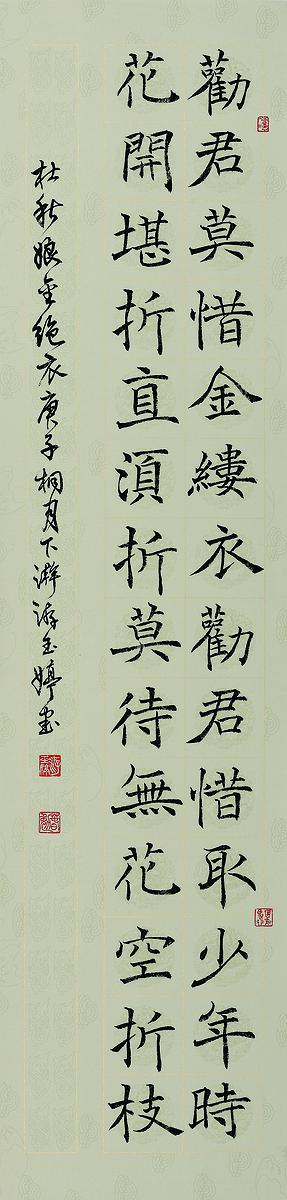 勸君莫惜金縷衣勸君惜取少年時
花開堪折直須折莫待無花空折枝
杜秋娘金縷衣庚子桐月下澣游玉婷書